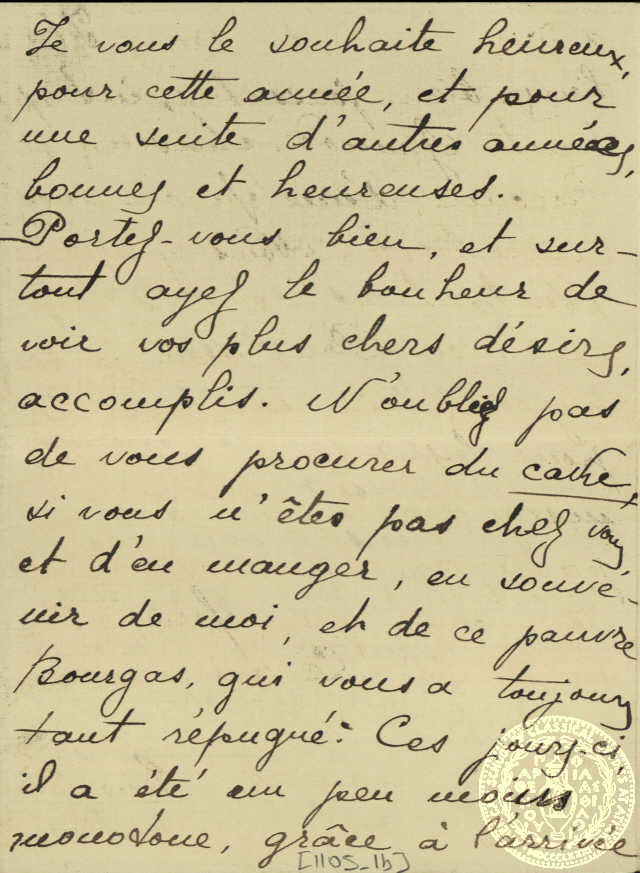 Je vous le souhaite heureux,
pour cette année, et pour
une suite d'autres années,
bonnes et heureuses.
Portez-vous bien, et sur-
tout ayez le bonheur de
voir vos plus chers désirs,
accomplis. N'oubliez pas
de vous procurer du cake,
si vous n'êtes pas chez vous,
et d'en manger, en souve-
nir de moi, et de ce pauvre
Bourgas, qui vous a toujours
tant répugné. Ces jours-ci,
il a été un peu moins
monotone, grâce à l'arrivée
[1105_1b]